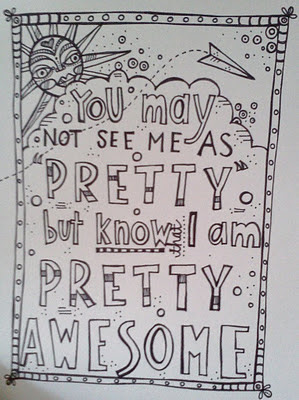 YOU may
NOT SEE ME AS
"PRETTY"
but know that I am
PRETTY
AWESOME